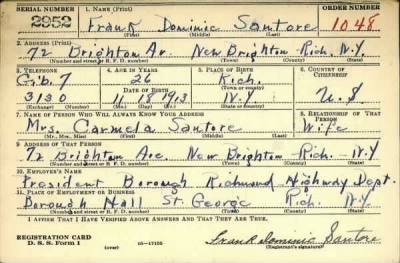 SERIAL NUMBER 1. NAME (Print) ORDER NUMBER
2953 Frank Dominic Santore 1048
(First) (Middle) (Last)
2. ADDRESS (Print)
72 Brighton Av. New Brighton Rich. N.Y.
(Number and street or R. F. D. number) (Town) (County) (State)
3. TELEPHONE 4. AGE IN YEARS 5. PLACE OF BIRTH 6. COUNTRY OF CITIZENSHIP
Gib. 7 26 Rich.
DATE OF BIRTH (Town or county)
3130 11 18 1913 N.Y U.S
(Exchange) (Number) (Mo.) (Day) (Yr.) (State or country)
7. NAME OF PERSON WHO WILL ALWAYS KNOW YOUR ADDRESS 8. RELATIONSHIP OF THAT PERSON
Mrs. Carmela Santore Wife
(Mr., Mrs., Miss) (First) (Middle) (Last)
9. ADDRESS OF THAT PERSON
72 Brighton Ave. New Brighton Rich. N.Y
(Number and street or R. F. D. number) (Town) (County) (State)
10. EMPLOYER'S NAME
President Borough Richmond Highway Dept.
11. PLACE OF EMPLOYMENT OR BUSINESS
Borough Hall St. George Rich. N.Y
(Number and street or R. F. D. number) (Town) (County) (State)
I AFFIRM THAT I HAVE VERIFIED ABOVE ANSWERS AND THAT THEY ARE TRUE.
REGISTRATION CARD
D. S. S. Form 1 (over) 16-17105 Frank Dominic Santore
(Registrant's signature)